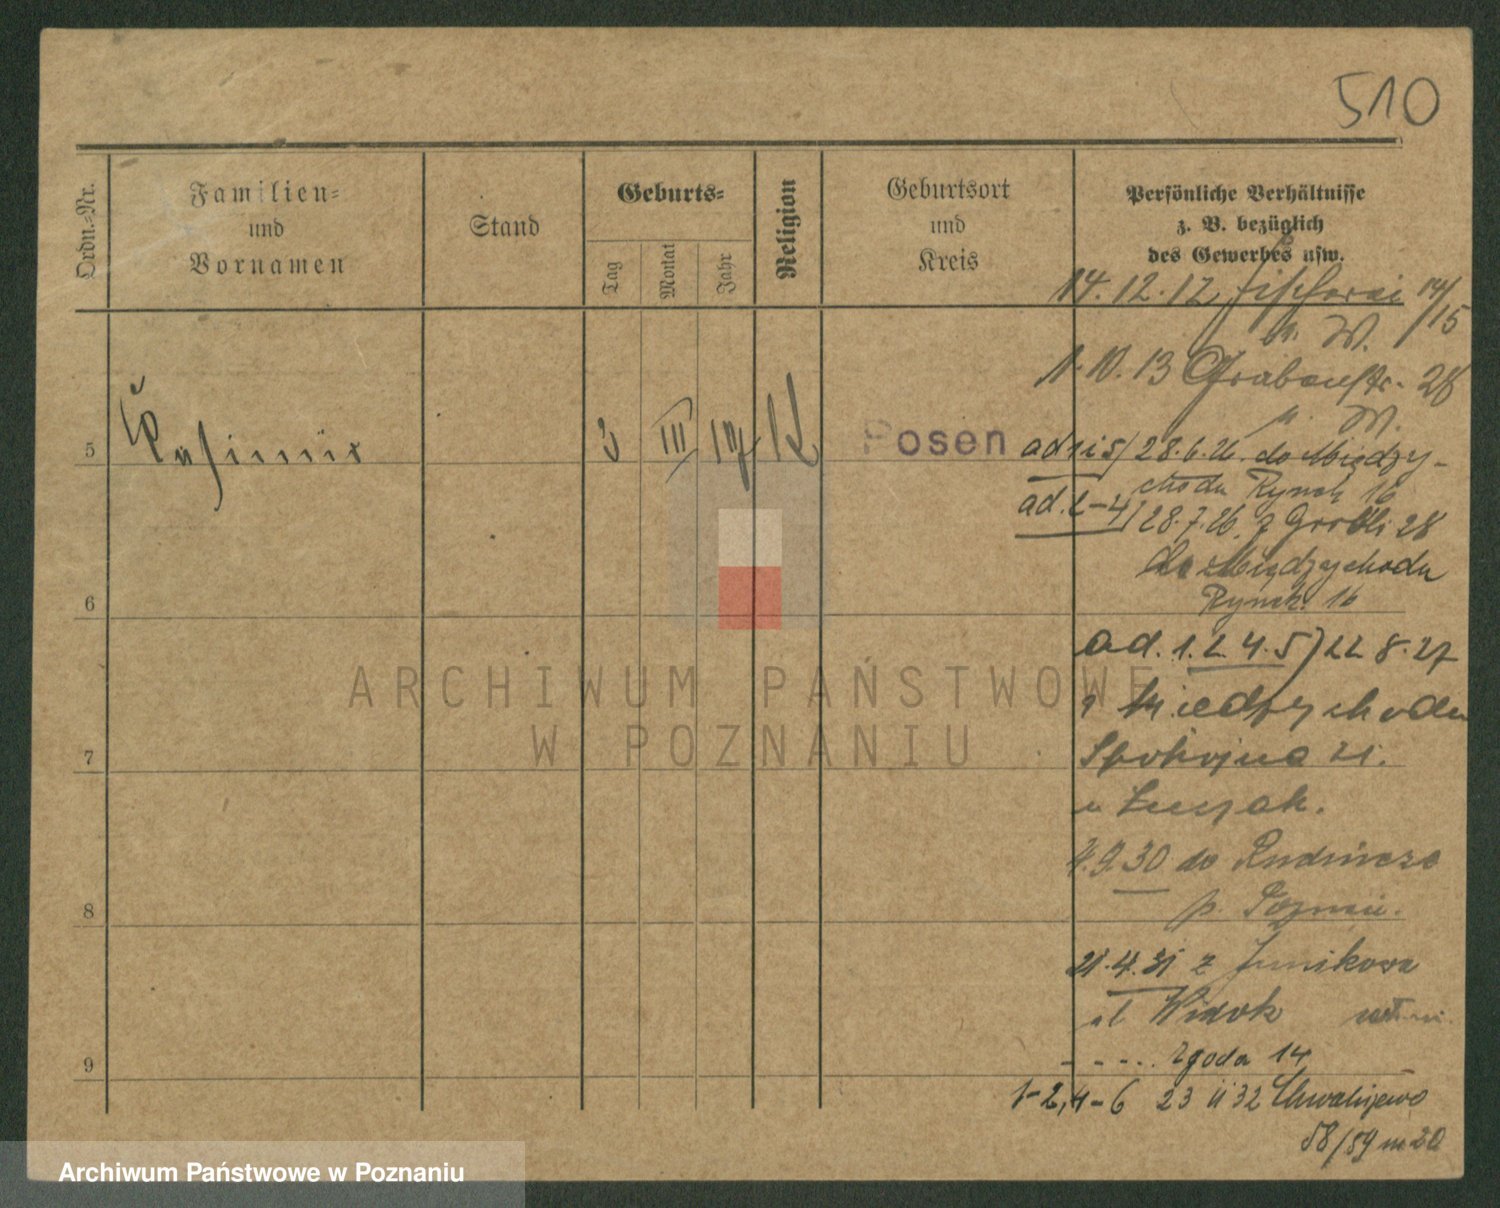 510
Ordn.=Nr.
Familien=
und
Vornamen
Stand
Geburts=
Tag
Monat
Jahr
Religion
Geburtsort
und
Kreis
Persönliche Verhältnisse
z. B. bezüglich
des Gewerbes usw.
14.12.12 14/15
W.
1.10.13 Grabenstr. 28
W.
5
Kasimir
3 III K
Posen
ad 1 i 5) 28.6.26. do Między-
chodu Rynek 16
ad. 2-4) 28.7.26. z Grobli 28
do Międzychodu
Rynek 16
6
ad. 1. 2. 4. 5) 22 8.27
z Miedzychodu
7
Spokojna 21.
u
.9.30 do Rudnicze
8
p. Poznań.
21.4.31 z Junikowa
ul Widok
Zgoda 14
9
1-2,4-6 23 II 32 Chwaliszewo
58/59 m 20
ARCHIWUM PAŃSTWOWE
W POZNANIU
Archiwum Państwowe w Poznaniu